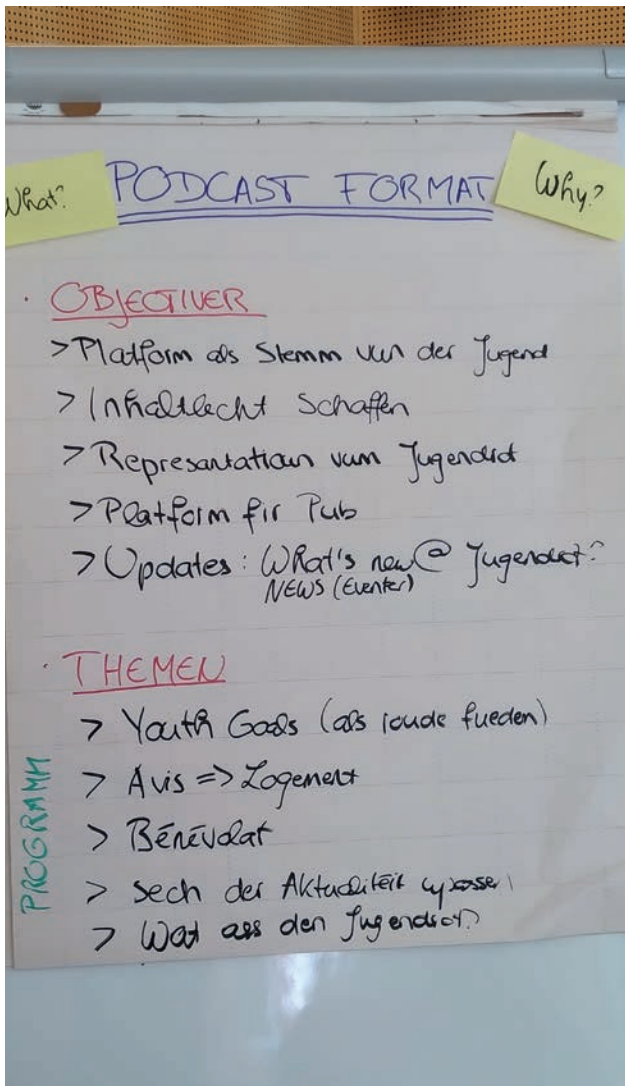 What?
PODCAST FORMAT
Why?
· OBJECTIVER
> Platform als Stemm vun der Jugend
> Inhaltlecht Schaffen
> Represantatioun vum Jugendrot
> Platform fir Pub
> Updates: What's new @ Jugendrot?
NEWS (Eventer)
· THEMEN
> Youth Goals (als roude fuedem)
> Avis => Logement
> Bénévolat
> sech der Aktualitéit upassen
> Wat ass den Jugendrot?
PROGRAMM